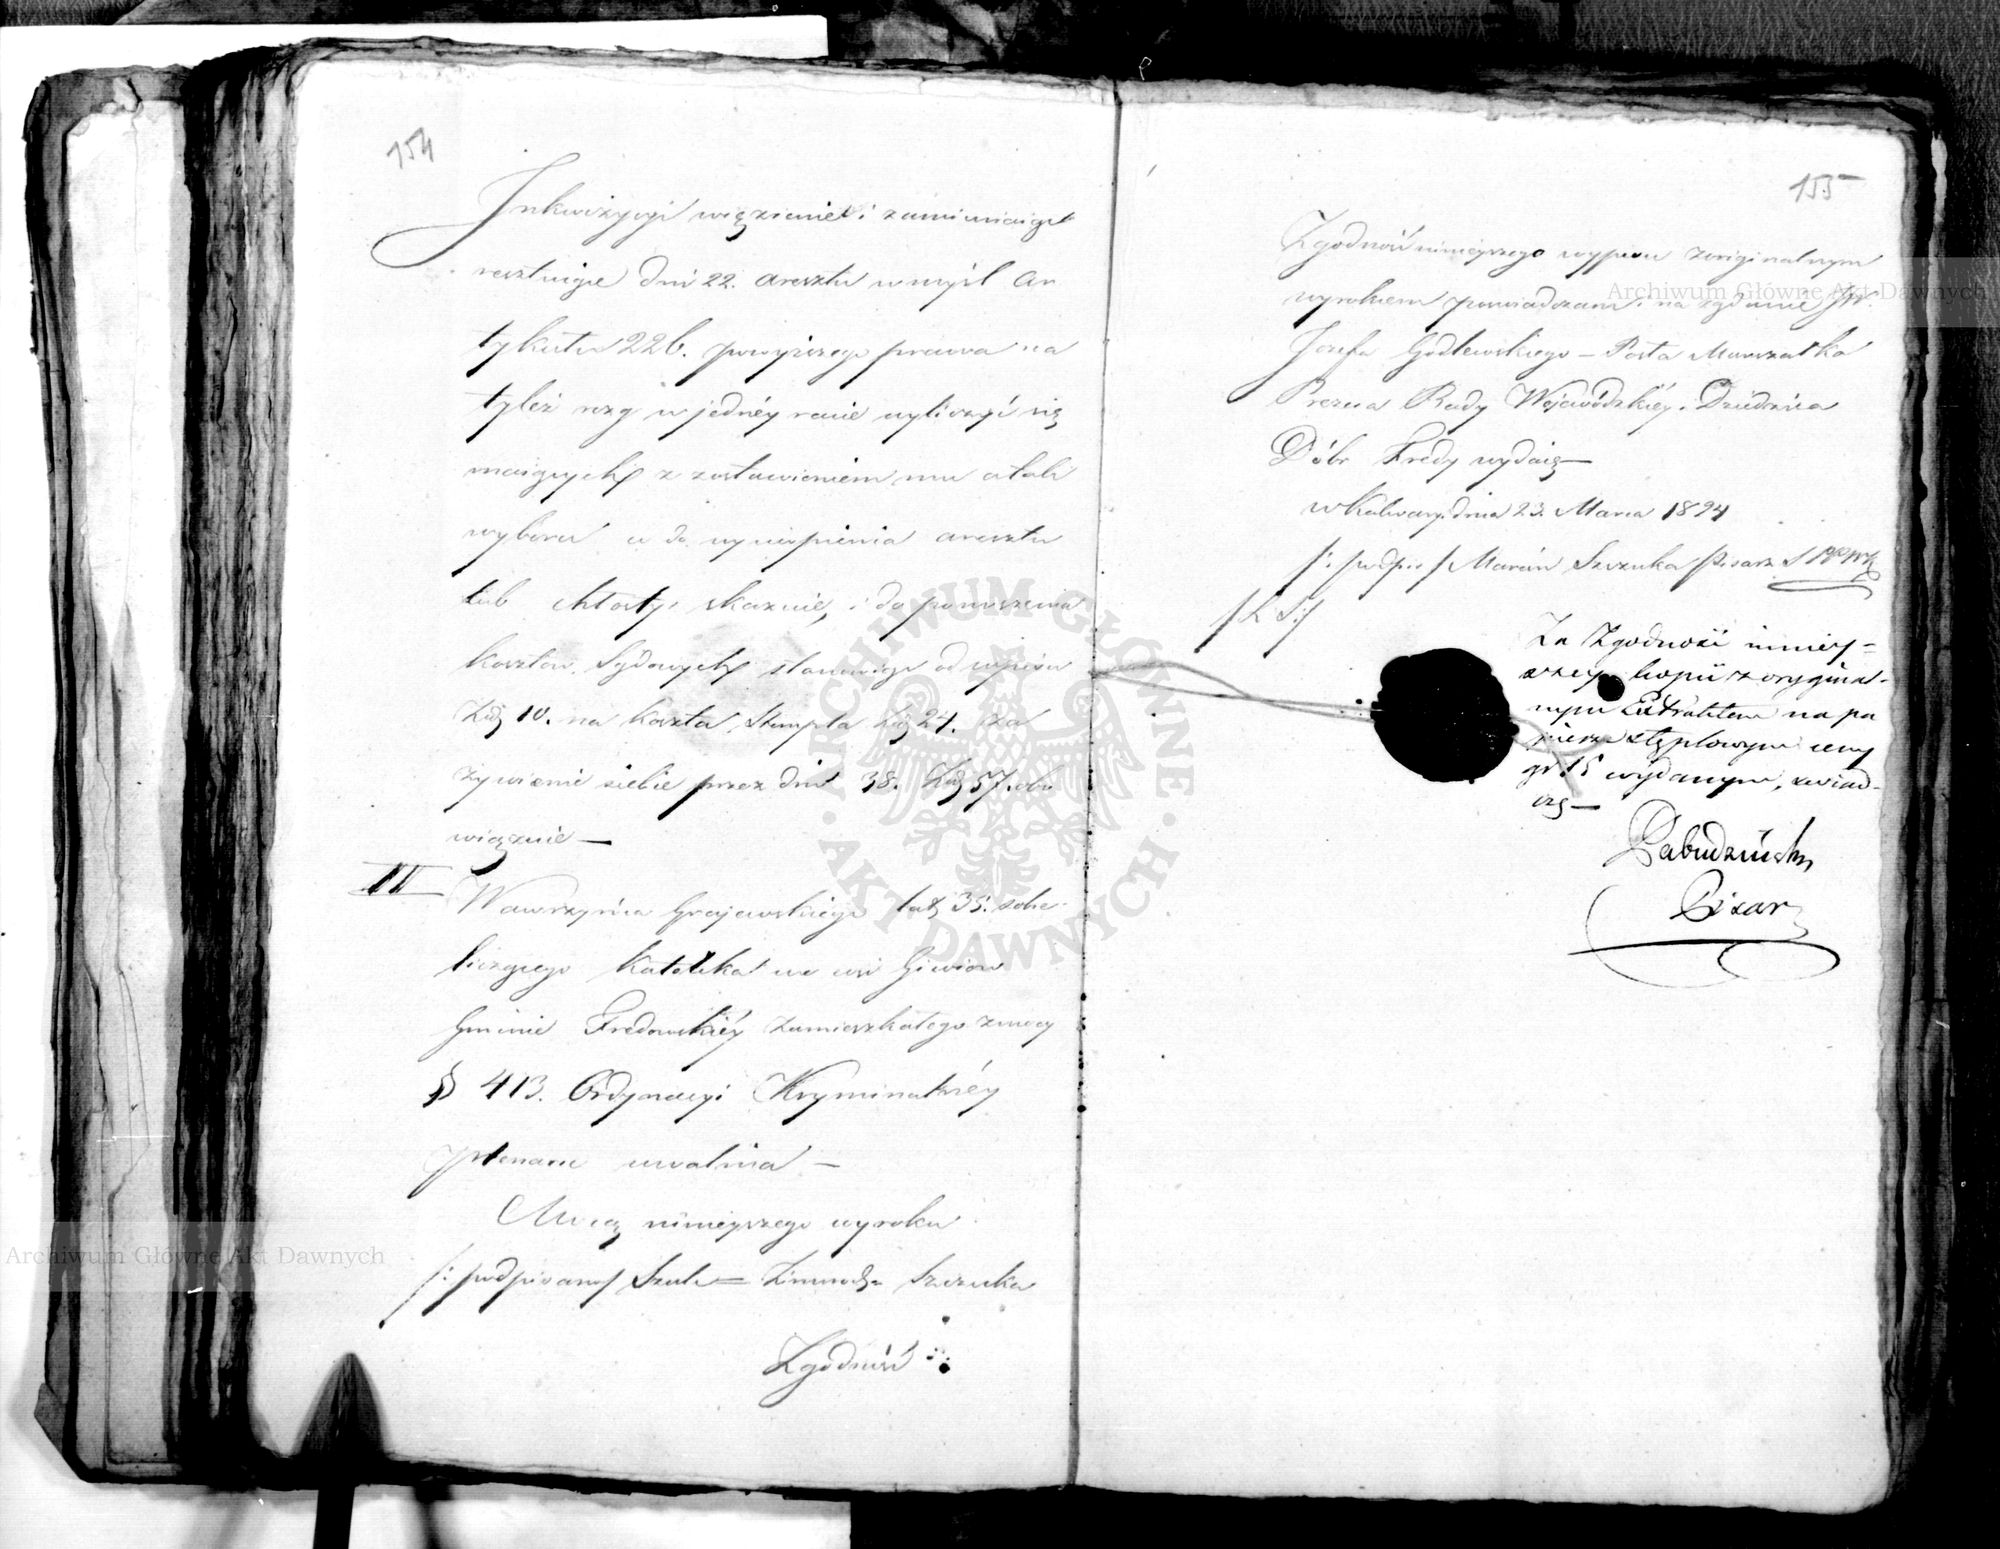 154
Inkwizycyi więzienie i zamieniaiąc
resztuiące dni 22. aresztu w myśl Ar
tykułu 226. powyższego prawa na
tyleż rózg w jednéy racie wyliczyć się
maiących z zostawieniem mu atoli
wyboru a do wycierpienia aresztu
lub chłosty skazuie, i do ponoszenia
kosztów Sądowych stanowiąc od wpisu
Złł 10. na koszta Stempla Złł 24. za
żywienie siebie przez dni 38. Złł 57. obo
wiązuie —
II
Wawrzyńca Grajewskiego lat 35. sobie
liczącego Katolika we wsi
Gminie Fredowskiéy zamieszkałego z mocy
§ 413. Ordynacyi Kryminalnéy
plenarie uwalnia —
Mocą ninieyszego wyroku
/: podpisano / Szulc = Szczuka
Zgodność
155
Zgodność ninieyszego wypisu z originalnym
wyrokiem poswiadczam i na żądanie JW.
Jozefa Godlewskiego — Posła Marszałka
Prezesa Rady Wojewódzkiéy. Dziedzica
Dóbr Fredy wydaię —
w Kalwaryi dnia 23. Marca 1824
/: podpis / Marcin Szczuka Pisarz
/ L. S: /
Za Zgodność niniey=
szey kopii z oryginal-
nym Extraktem na pa
pierze stęplowym ceny
gr. 15 wydanym, zwiad-
czę —
Pisarz
Archiwum Główne Akt Dawnych
Archiwum Główne Akt Dawnych
ARCHIWUM GŁÓWNE
AKT DAWNYCH